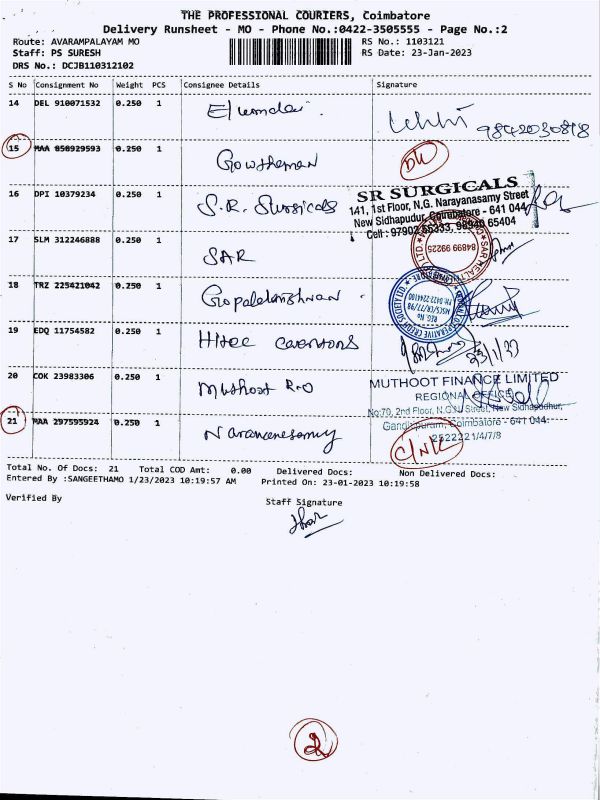 THE PROFESSIONAL COURIERS, Coimbatore
Delivery Runsheet - MO - Phone No.:0422-3505555 - Page No.:2
Route: AVARAMPALAYAM MO
RS No.: 1103121
Staff: PS SURESH
RS Date: 23-Jan-2023
DRS No.: DCJB110312102
S No Consignment No Weight PCS Consignee Details Signature
14 DEL 910071532 0.250 1
9842030818
15 MAA 850929593 0.250 1 Gowthaman
16 DPI 10379234 0.250 1 S.R. Surgicals
SR SURGICALS
141, 1st Floor, N.G. Narayanasamy Street
New Sidhapudur, Coimbatore - 641 044
Cell : 97902 65333, 98940 65404
17 SLM 312246888 0.250 1 SAR
848899 99225
18 TRZ 225421042 0.250 1 Gopalakrishnan
19 EDQ 11754582 0.250 1 Hitec
23/1/23
20 COK 23983306 0.250 1 Muthoot R.O
MUTHOOT FINANCE LIMITED
REGIONAL OFFICE
No:70, 2nd Floor, N.G.N. Street, New Sidhapudhur,
Gandhipuram, Coimbatore - 641 044.
2522221/4/7/8
21 MAA 297595924 0.250 1 Naranenesamy
C/NK
Total No. Of Docs: 21 Total COD Amt: 0.00 Delivered Docs: Non Delivered Docs:
Entered By :SANGEETHAMO 1/23/2023 10:19:57 AM Printed On: 23-01-2023 10:19:58
Verified By
Staff Signature
2